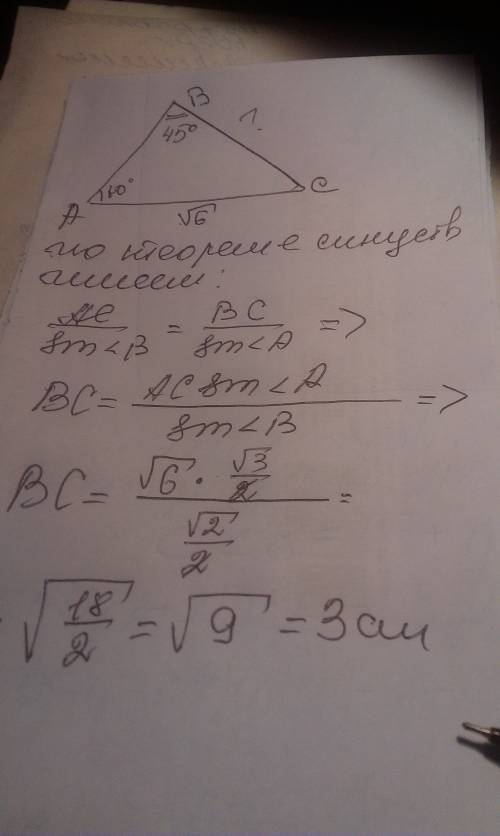 B
?
45°
60°
A
C
√6
по теореме синусов
имеем:
AC / sin<B = BC / sin<A =>
BC = AC sin<A / sin<B =>
BC = √6 · √3/2 / √2/2 =
√18/2 = √9 = 3 см